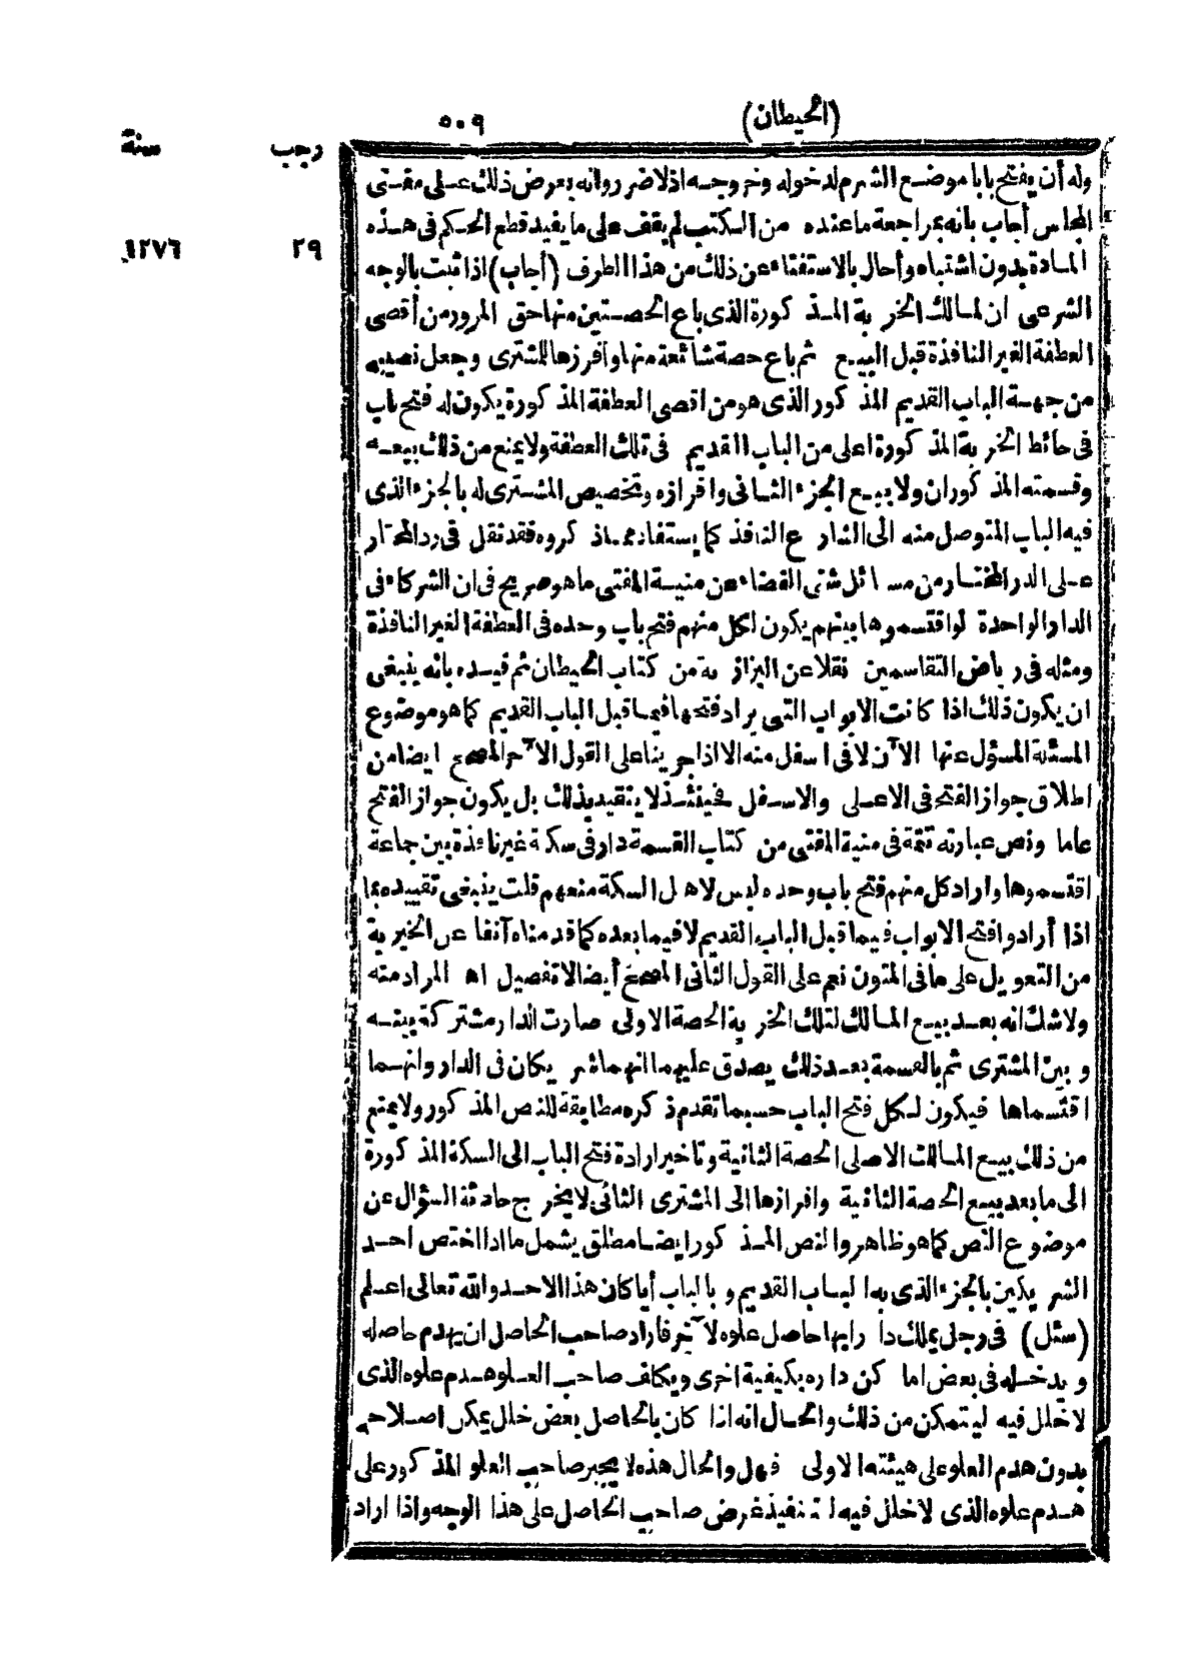 (الحيطان)
٥٠٩
رجب سنة
٢٩ ١٢٧٦
وله أن يفتح بابا موضع الشرم لدخوله وخروجه اذلا ضرر وانه بعرض ذلك على مفتى
المجلس أجاب بانه بمراجعة ما عنده من الكتب لم يقف على ما يفيد قطع الحكم فى هذه
المادة بدون اشتباه وأحال بالاستفتاء عن ذلك من هذا الطرف (أجاب) اذا ثبت بالوجه
الشرعى ان لمالك الخربة المذكورة الذى باع الحصتين منها حق المرور من أقصى
العطفة الغير النافذة قبل البيع ثم باع حصة شائعة منها وأفرزها للمشترى وجعل نصيبه
من جهة الباب القديم المذكور الذى هو من اقصى العطفة المذكورة يكون له فتح باب
فى حائط الخربة المذكورة اعلى من الباب القديم فى تلك العطفة ولا يمنع من ذلك بيعه
وقسمته المذكوران ولا بيع الجزء الثانى وافرازه وتخصيص المشترى له بالجزء الذى
فيه الباب المتوصل منه الى الشارع النافذ كما يستفاد مما ذكروه فقد نقل فى رد المحتار
على الدر المختار من مسائل شتى القضاء عن منية المفتى ما هو صريح فى ان الشركاء فى
الدار الواحدة لو اقتسموها بينهم يكون لكل منهم فتح باب وحده فى العطفة الغير النافذة
ومثله فى رياض القاسمين نقلا عن البزازية من كتاب الحيطان ثم قيده بانه ينبغى
ان يكون ذلك اذا كانت الابواب التى يراد فتحها فيما قبل الباب القديم كما هو موضوع
المسئلة المسؤل عنها الآن لا فى اسفل منه الا اذا جرينا على القول الآخر المصحح ايضا من
اطلاق جواز الفتح فى الاعلى والاسفل فحينئذ لا يتقيد بذلك بل يكون جواز الفتح
عاما ونص عبارته تتمة فى منية المفتى من كتاب القسمة دار فى سكة غير نافذة بين جماعة
اقتسموها وأراد كل منهم فتح باب وحده ليس لاهل السكة منعهم قلت ينبغى تقييده بما
اذا أرادوا فتح الابواب فيما قبل الباب القديم لا فيما بعده كما قدمناه آنفا عن الخيرية
من التعويل على ما فى المتون نعم على القول الثانى المصحح أيضا لا تفصيل اه المراد منه
ولا شك انه بعد بيع المالك لتلك الخربة الحصة الاولى صارت الدار مشتركة بينه
وبين المشترى ثم بالقسمة بعد ذلك يصدق عليهما انهما شريكان فى الدار وانهما
اقتسماها فيكون لكل فتح الباب حسبما تقدم ذكره مطابقة للنص المذكور ولا يمنع
من ذلك بيع المالك الاصلى الحصة الثانية وتاخير ارادة فتح الباب الى السكة المذكورة
الى ما بعد بيع الحصة الثانية وافرازها الى المشترى الثانى لا يخرج حادثة السؤال عن
موضوع النص كما هو ظاهر والنص المذكور ايضا مطلق يشمل ما اذا اختص احد
الشريكين بالجزء الذى به الباب القديم وبالباب أيا كان هذا الاحد والله تعالى اعلم
(سئل) فى رجل يملك دارا بها حاصل علوه لآخر فاراد صاحب الحاصل ان يهدم حاصله
ويدخله فى بعض اماكن داره بكيفية اخرى ويكلف صاحب العلو هدم علوه الذى
لا خلل فيه ليتمكن من ذلك والحال انه اذا كان بالحاصل بعض خلل يمكن اصلاحه
بدون هدم العلو على هيئته الاولى فهل والحال هذه لا يجبر صاحب العلو المذكور على
هدم علوه الذى لا خلل فيه لتنفيذ غرض صاحب الحاصل على هذا الوجه واذا اراد